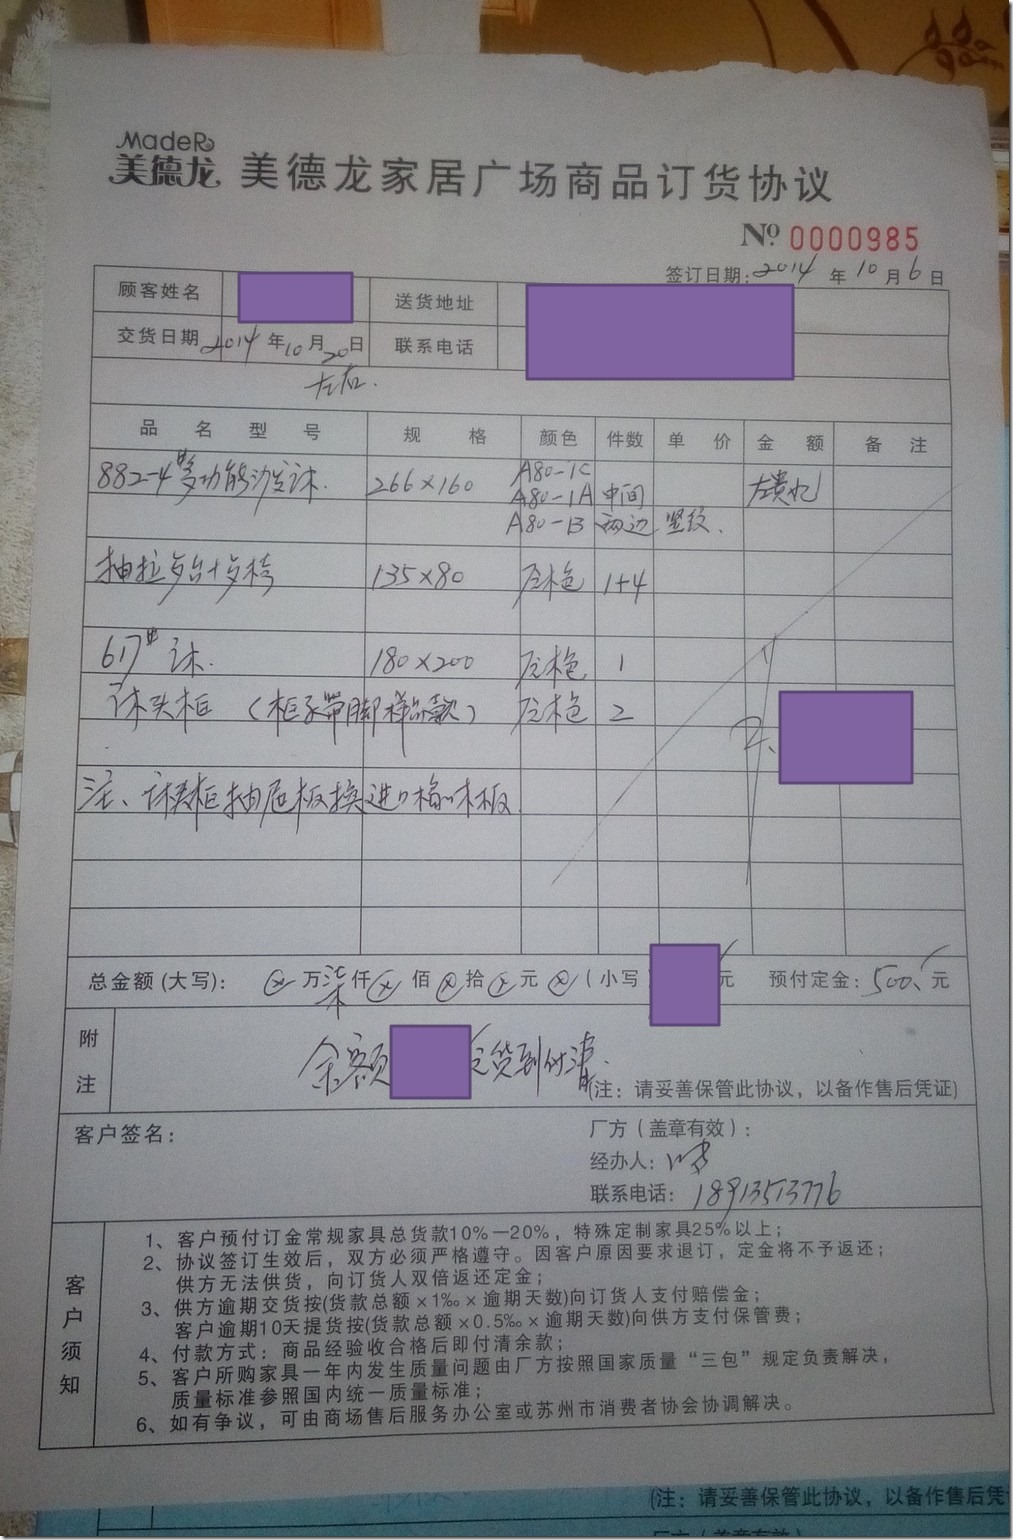 MadeR
美德龙 美德龙家居广场商品订货协议
No 0000985
签订日期:2014 年 10 月 6 日
顾客姓名 送货地址
交货日期 2014 年 10 月 20 日 联系电话
左右.
品名型号 规格 颜色 件数 单价 金额 备注
A80-1C
882-4#多功能沙发床. 266×160 A80-1A 中间 左贵妃
A80-1B 两边 竖纹.
抽拉 台+ 椅 135×80 木色 1+4
617# 床. 180×200 木色 1
床头柜 (柜子带脚样品款) 木色 2
注、床头柜抽底板换进口 木板.
总金额(大写): ⊗万柒仟⊗佰⊗拾⊗元⊗(小写 元 预付定金:500.元
附注 余额 货到付清.
(注:请妥善保管此协议,以备作售后凭证)
客户签名: 厂方(盖章有效):
经办人:
联系电话: 18913513776
客户须知
1、客户预付订金常规家具总货款10%—20%,特殊定制家具25%以上;
2、协议签订生效后,双方必须严格遵守。因客户原因要求退订,定金将不予返还;
供方无法供货,向订货人双倍返还定金;
3、供方逾期交货按(货款总额×1‰×逾期天数)向订货人支付赔偿金;
客户逾期10天提货按(货款总额×0.5‰×逾期天数)向供方支付保管费;
4、付款方式:商品经验收合格后即付清余款;
5、客户所购家具一年内发生质量问题由厂方按照国家质量“三包”规定负责解决,
质量标准参照国内统一质量标准;
6、如有争议,可由商场售后服务办公室或苏州市消费者协会协调解决。
(注:请妥善保管此协议,以备作售后凭
厂方(盖章有效)